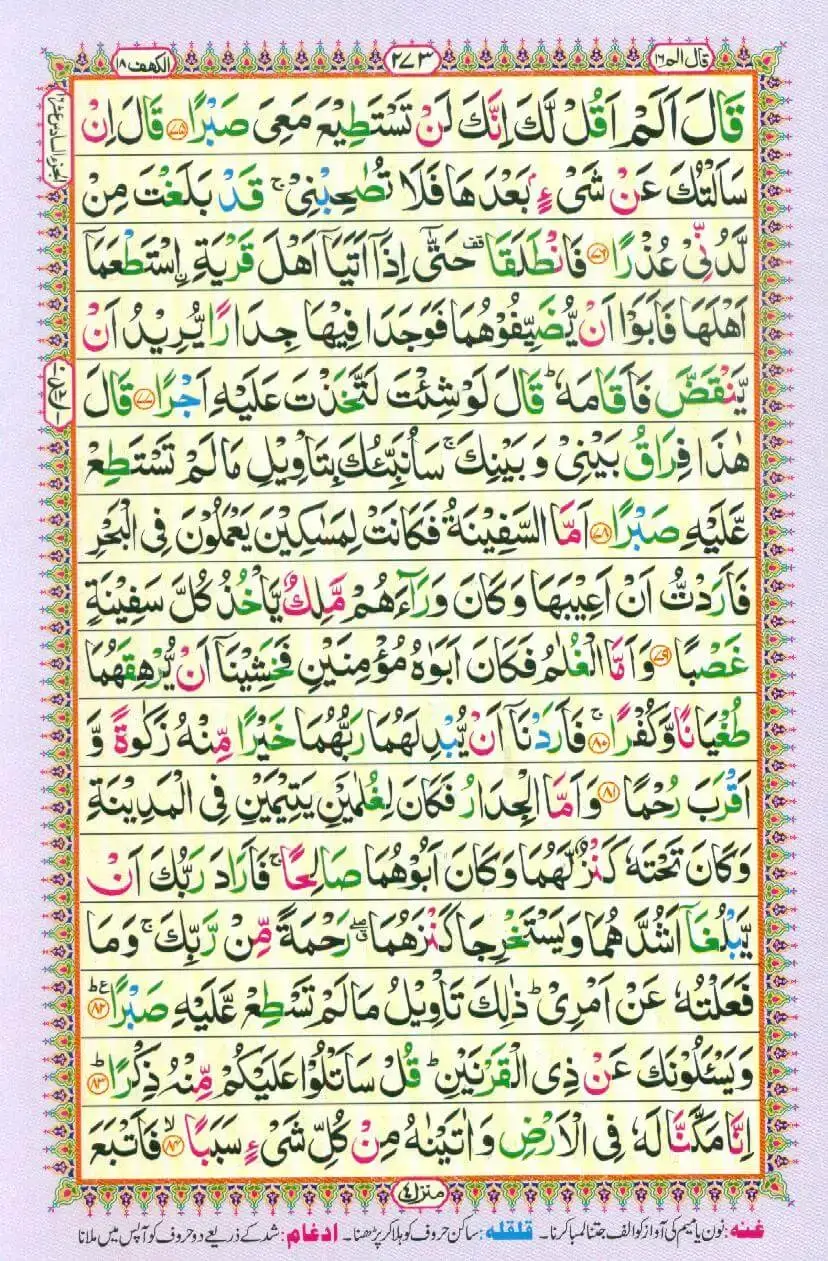 قال الم ١٦
٢٧٣
الكهف ١٨
قَالَ اَلَمْ اَقُلْ لَّكَ اِنَّكَ لَنْ تَسْتَطِيْعَ مَعِىَ صَبْرًا ﴿٧٥﴾ قَالَ اِنْ
سَاَلْتُكَ عَنْ شَىْءٍۭ بَعْدَهَا فَلَا تُصٰحِبْنِىْ ۚ قَدْ بَلَغْتَ مِنْ
لَّدُنِّىْ عُذْرًا ﴿٧٦﴾ فَانْطَلَقَا ࣞ حَتّٰٓى اِذَآ اَتَيَآ اَهْلَ قَرْيَةِ ۨاسْتَطْعَمَآ
اَهْلَهَا فَاَبَوْا اَنْ يُّضَيِّفُوْهُمَا فَوَجَدَا فِيْهَا جِدَارًا يُّرِيْدُ اَنْ
يَّنْقَضَّ فَاَقَامَهٗ ؕ قَالَ لَوْ شِئْتَ لَتَّخَذْتَ عَلَيْهِ اَجْرًا ﴿٧٧﴾ قَالَ
هٰذَا فِرَاقُ بَيْنِىْ وَبَيْنِكَ ۚ سَاُنَبِّئُكَ بِتَاْوِيْلِ مَا لَمْ تَسْتَطِعْ
عَّلَيْهِ صَبْرًا ﴿٧٨﴾ اَمَّا السَّفِيْنَةُ فَكَانَتْ لِمَسٰكِيْنَ يَعْمَلُوْنَ فِى الْبَحْرِ
فَاَرَدْتُّ اَنْ اَعِيْبَهَا وَكَانَ وَرَآءَهُمْ مَّلِكٌ يَّاْخُذُ كُلَّ سَفِيْنَةٍ
غَصْبًا ﴿٧٩﴾ وَاَمَّا الْغُلٰمُ فَكَانَ اَبَوٰهُ مُؤْمِنَيْنِ فَخَشِيْنَآ اَنْ يُّرْهِقَهُمَا
طُغْيَانًا وَّكُفْرًا ﴿٨٠﴾ ۚ فَاَرَدْنَآ اَنْ يُّبْدِلَهُمَا رَبُّهُمَا خَيْرًا مِّنْهُ زَكٰوةً وَّ
اَقْرَبَ رُحْمًا ﴿٨١﴾ وَاَمَّا الْجِدَارُ فَكَانَ لِغُلٰمَيْنِ يَتِيْمَيْنِ فِى الْمَدِيْنَةِ
وَكَانَ تَحْتَهٗ كَنْزٌ لَّهُمَا وَكَانَ اَبُوْهُمَا صَالِحًا ۚ فَاَرَادَ رَبُّكَ اَنْ
يَّبْلُغَآ اَشُدَّهُمَا وَيَسْتَخْرِجَا كَنْزَهُمَا ۖ رَحْمَةً مِّنْ رَّبِّكَ ۚ وَمَا
فَعَلْتُهٗ عَنْ اَمْرِىْ ؕ ذٰلِكَ تَاْوِيْلُ مَا لَمْ تَسْطِعْ عَّلَيْهِ صَبْرًا ﴿٨٢﴾ ؕ ع
وَيَسْـَٔلُوْنَكَ عَنْ ذِى الْقَرْنَيْنِ ؕ قُلْ سَاَتْلُوْا عَلَيْكُمْ مِّنْهُ ذِكْرًا ﴿٨٣﴾ ؕ
اِنَّا مَكَّنَّا لَهٗ فِى الْاَرْضِ وَاٰتَيْنٰهُ مِنْ كُلِّ شَىْءٍ سَبَبًا ﴿٨٤﴾ ۙ فَاَتْبَعَ
منزل ٤
غنه: نون یا میم کی آواز کو الف جتنا لمبا کرنا۔ قلقله: ساکن حروف کو ہلا کر پڑھنا۔ ادغام: شد کے ذریعے دو حروف کو آپس میں ملانا